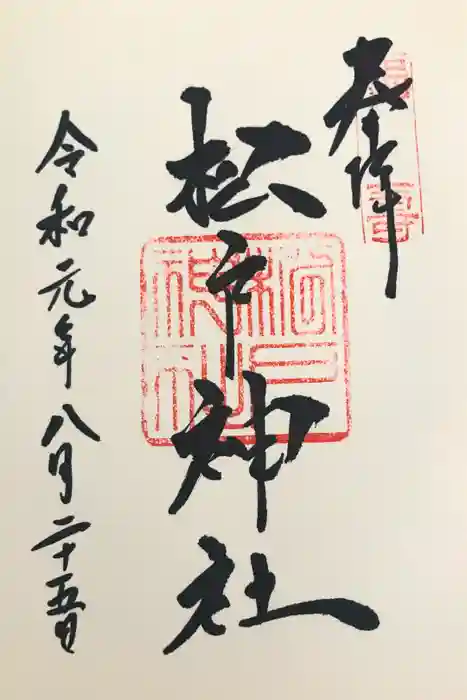 奉拝
松市神社
令和元年八月二十五日